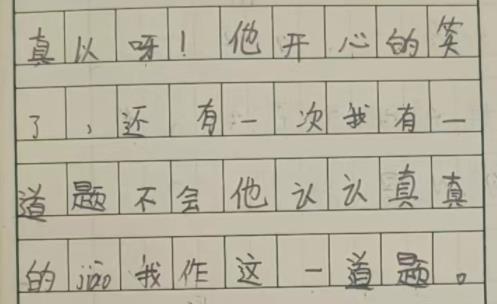 真以呀！他开心的笑
了，还有一次我有一
道题不会他认认真真
的jiāo我作这一道题。